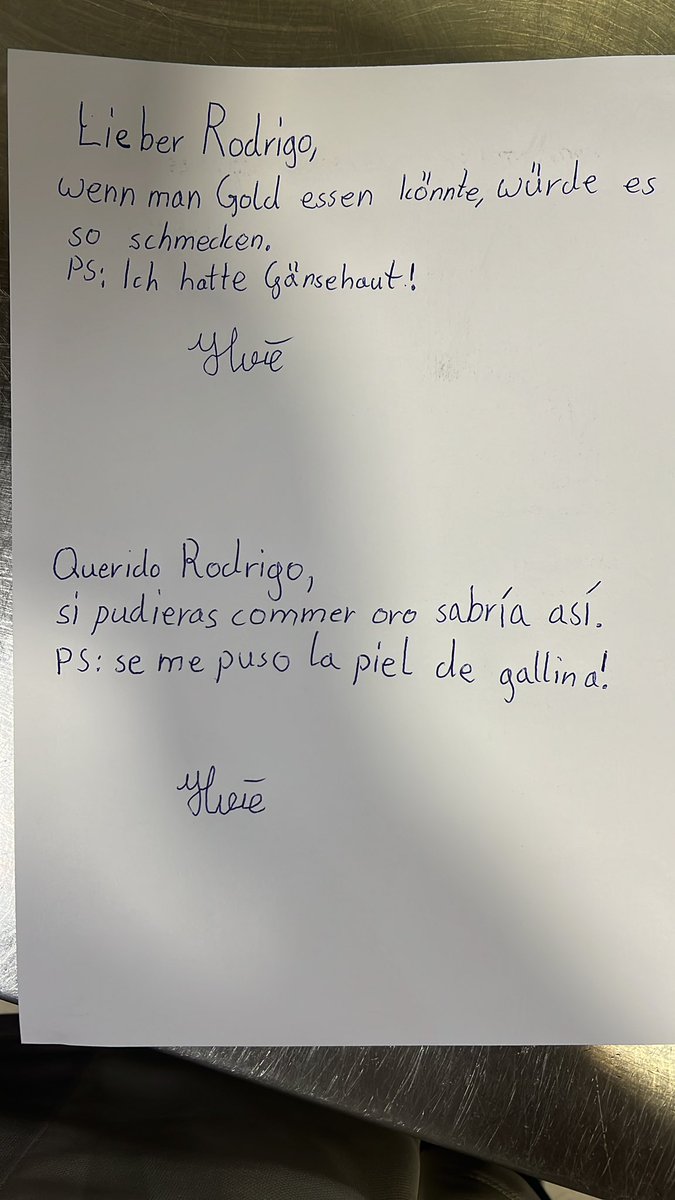 Lieber Rodrigo,
wenn man Gold essen könnte, würde es
so schmecken.
PS: Ich hatte Gänsehaut!
Querido Rodrigo,
si pudieras commer oro sabría así.
PS: se me puso la piel de gallina!